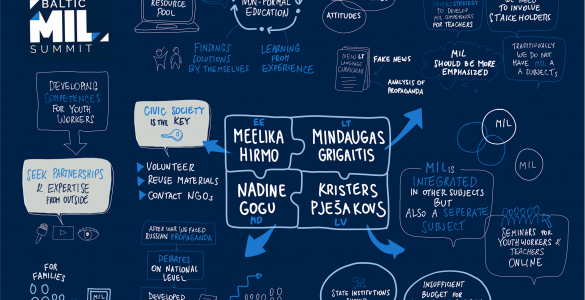 BALTIC
MIL
SUMMIT
RESOURCE
POOL
NON-FORMAL
EDUCATION
ATTITUDES
FINDINGS
SOLUTIONS
BY THEMSELVES
LEARNING
FROM
EXPERIENCE
TO DEVELOP
MIL COMPETENCES
FOR TEACHERS
TO INVOLVE
STAKEHOLDERS
NEW LT
LANGUAGE
CURRICULUM
FAKE NEWS
ANALYSIS OF
PROPAGANDA
MIL
SHOULD BE MORE
EMPHASIZED
TRADITIONALLY
WE DO NOT
HAVE MIL A
A SUBJECTS
DEVELOPING
COMPETENCES
FOR YOUTH
WORKERS
CIVIC SOCIETY
IS THE KEY
VOLUNTEER
REUSE MATERIALS
CONTACT NGOs
EE
MEELIKA
HIRMO
LT
MINDAUGAS
GRIGAITIS
NADINE
GOGU
MD
KRISTERS
PJEŠAKOVS
LV
MIL
MIL
MIL IS
INTEGRATED
IN OTHER SUBJECTS
BUT
ALSO A SEPERATE
SUBJECT
SEMINARS FOR
YOUTH WORKERS &
TEACHERS
ONLINE
SEEK PARTNERSHIPS
& EXPERTISE
FROM OUTSIDE
FOR
FAMILIES
MIL
AFTER WAR WE FACED
RUSSIAN PROPAGANDA
DEBATES
ON NATIONAL
LEVEL
DEVELOPED
STATE INSTITUTIONS
INSUFFICIENT
BUDGET FOR